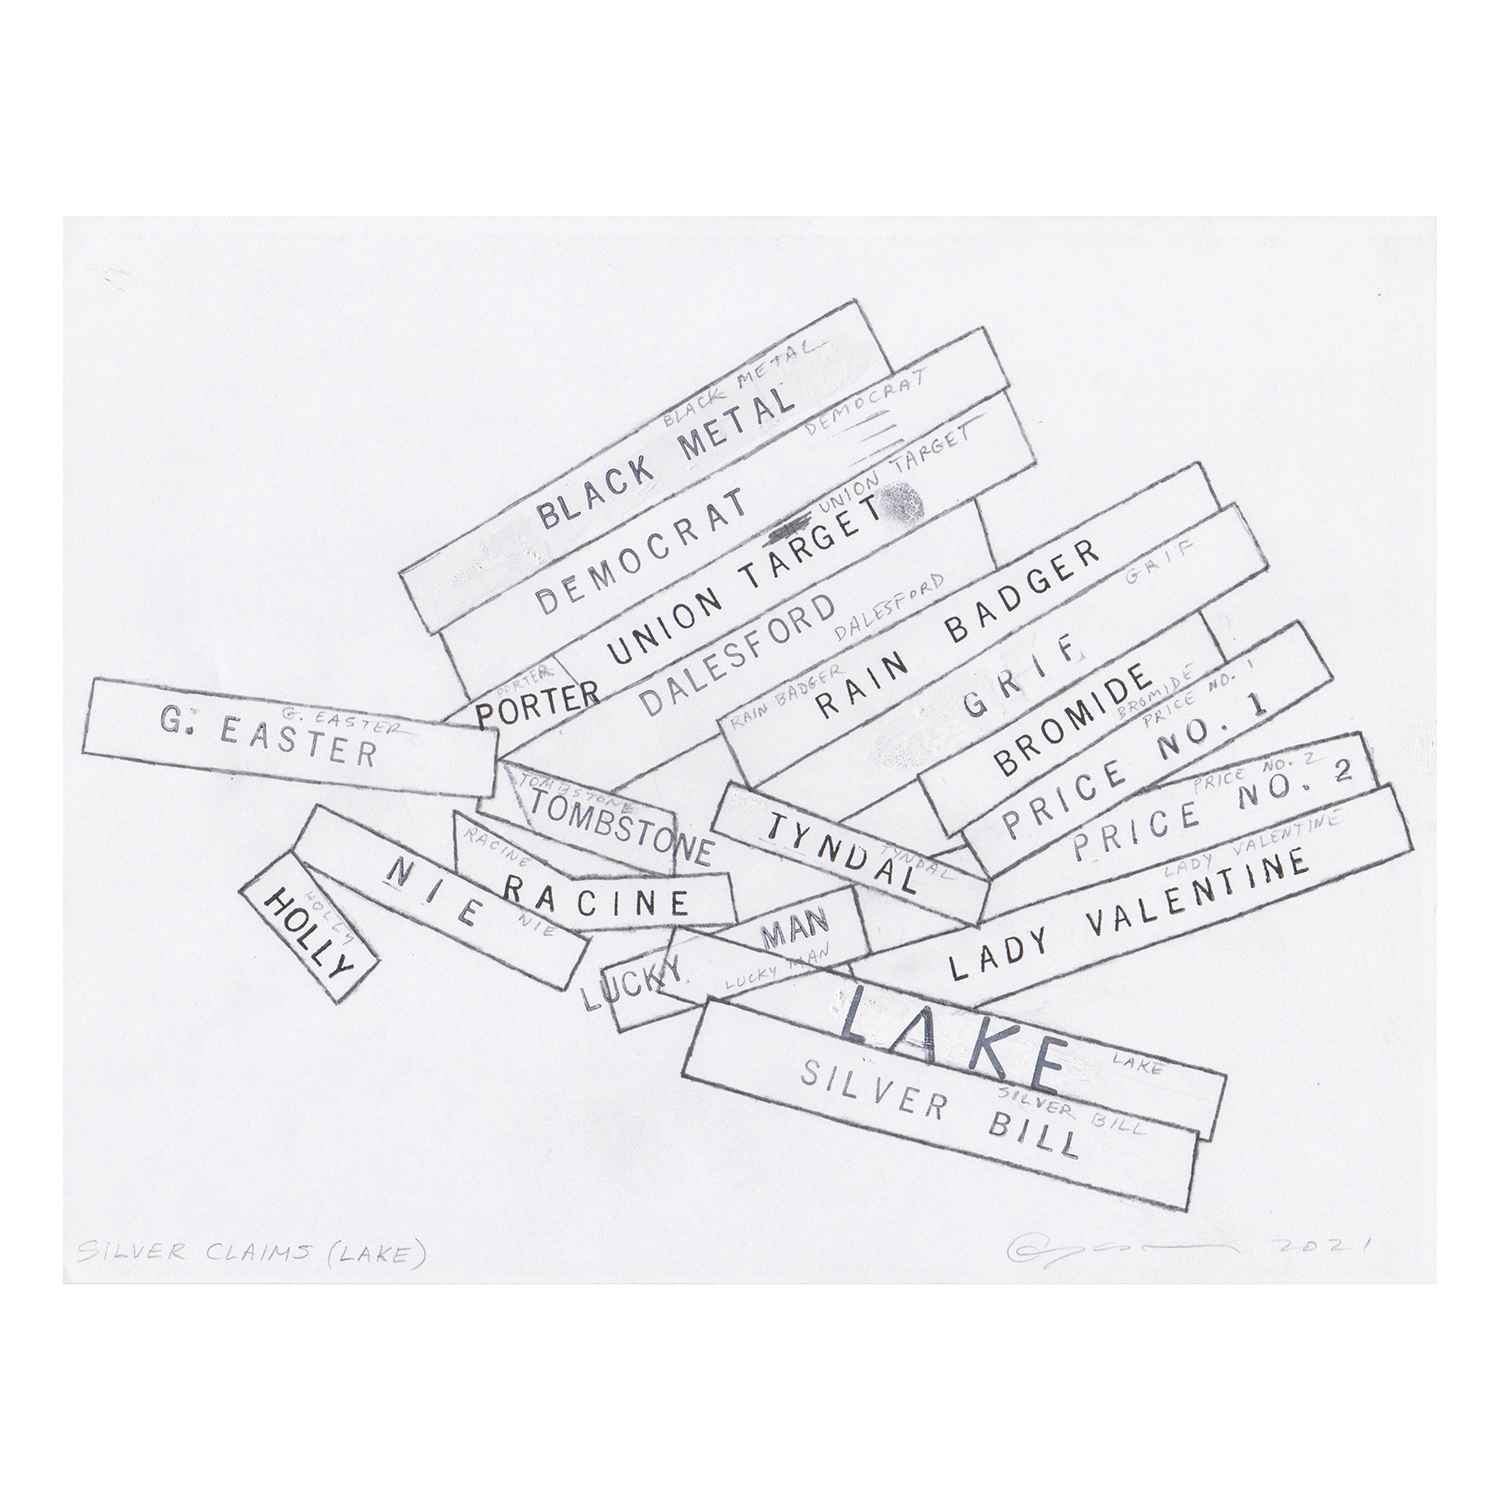 BLACK METAL
BLACK METAL
DEMOCRAT
DEMOCRAT
UNION TARGET
UNION TARGET
DALESFORD
DALESFORD
PORTER
PORTER
RAIN BADGER
RAIN BADGER
GRIF
GRIF
BROMIDE
BROMIDE
PRICE NO. 1
PRICE NO. 1
PRICE NO. 2
PRICE NO. 2
LADY VALENTINE
LADY VALENTINE
G. EASTER
G. EASTER
TOMBSTONE
TOMBSTONE
TYNDAL
TYNDAL
RACINE
RACINE
NIE
NIE
HOLLY
HOLLY
LUCKY MAN
LUCKY MAN
LAKE
LAKE
SILVER BILL
SILVER BILL
SILVER CLAIMS (LAKE)
2021